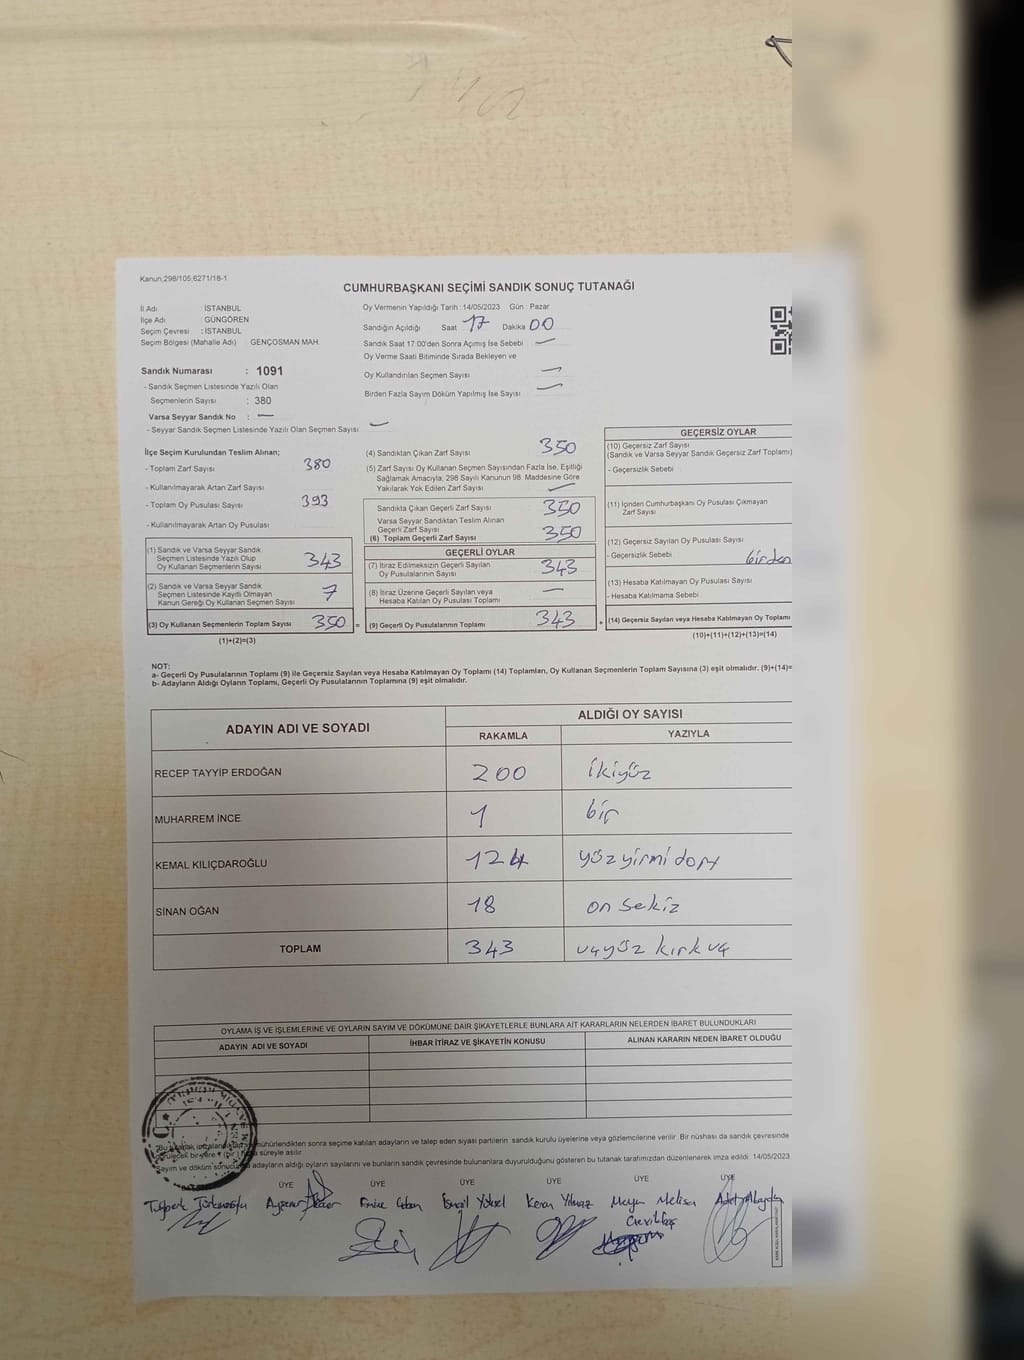 Kanun;298/105;6271/18-1
CUMHURBAŞKANI SEÇİMİ SANDIK SONUÇ TUTANAĞI
İl Adı : İSTANBUL
İlçe Adı : GÜNGÖREN
Seçim Çevresi : İSTANBUL
Seçim Bölgesi (Mahalle Adı) GENÇOSMAN MAH.
Sandık Numarası : 1091
- Sandık Seçmen Listesinde Yazılı Olan
Seçmenlerin Sayısı : 380
Varsa Seyyar Sandık No : —
- Seyyar Sandık Seçmen Listesinde Yazılı Olan Seçmen Sayısı —
Oy Vermenin Yapıldığı Tarih : 14/05/2023 Gün : Pazar
Sandığın Açıldığı Saat 17 Dakika 00
Sandık Saat 17:00'den Sonra Açımış İse Sebebi —
Oy Verme Saati Bitiminde Sırada Bekleyen ve
Oy Kullandırılan Seçmen Sayısı —
Birden Fazla Sayım Döküm Yapılmış İse Sayısı —
İlçe Seçim Kurulundan Teslim Alınan;
- Toplam Zarf Sayısı 380
- Kullanılmayarak Artan Zarf Sayısı
- Toplam Oy Pusulası Sayısı 393
- Kullanılmayarak Artan Oy Pusulası
(1) Sandık ve Varsa Seyyar Sandık
Seçmen Listesinde Yazılı Olup
Oy Kullanan Seçmenlerin Sayısı 343
(2) Sandık ve Varsa Seyyar Sandık
Seçmen Listesinde Kayıtlı Olmayan
Kanun Gereği Oy Kullanan Seçmen Sayısı 7
(3) Oy Kullanan Seçmenlerin Toplam Sayısı 350 =
(1)+(2)=(3)
(4) Sandıktan Çıkan Zarf Sayısı 350
(5) Zarf Sayısı Oy Kullanan Seçmen Sayısından Fazla İse, Eşitliği
Sağlamak Amacıyla, 298 Sayılı Kanunun 98. Maddesine Göre
Yakılarak Yok Edilen Zarf Sayısı —
Sandıkta Çıkan Geçerli Zarf Sayısı 350
Varsa Seyyar Sandıktan Teslim Alınan
Geçerli Zarf Sayısı
(6) Toplam Geçerli Zarf Sayısı 350
GEÇERLİ OYLAR
(7) İtiraz Edilmeksizin Geçerli Sayılan
Oy Pusulalarının Sayısı 343
(8) İtiraz Üzerine Geçerli Sayılan veya
Hesaba Katılan Oy Pusulası Toplamı —
(9) Geçerli Oy Pusulalarının Toplamı 343 +
GEÇERSİZ OYLAR
(10) Geçersiz Zarf Sayısı
(Sandık ve Varsa Seyyar Sandık Geçersiz Zarf Toplamı)
- Geçersizlik Sebebi
(11) İçinden Cumhurbaşkanı Oy Pusulası Çıkmayan
Zarf Sayısı
(12) Geçersiz Sayılan Oy Pusulası Sayısı
- Geçersizlik Sebebi birden
(13) Hesaba Katılmayan Oy Pusulası Sayısı
- Hesaba Katılmama Sebebi
(14) Geçersiz Sayılan veya Hesaba Katılmayan Oy Toplamı
(10)+(11)+(12)+(13)=(14)
NOT:
a- Geçerli Oy Pusulalarının Toplamı (9) ile Geçersiz Sayılan veya Hesaba Katılmayan Oy Toplamı (14) Toplamları, Oy Kullanan Seçmenlerin Toplam Sayısına (3) eşit olmalıdır. (9)+(14)=
b- Adayların Aldığı Oyların Toplamı, Geçerli Oy Pusulalarının Toplamına (9) eşit olmalıdır.
ADAYIN ADI VE SOYADI ALDIĞI OY SAYISI
RAKAMLA YAZIYLA
RECEP TAYYİP ERDOĞAN 200 ikiyüz
MUHARREM İNCE 1 bir
KEMAL KILIÇDAROĞLU 124 yüzyirmi dört
SİNAN OĞAN 18 on sekiz
TOPLAM 343 üçyüz kırk üç
OYLAMA İŞ VE İŞLEMLERİNE VE OYLARIN SAYIM VE DÖKÜMÜNE DAİR ŞİKAYETLERLE BUNLARA AİT KARARLARIN NELERDEN İBARET BULUNDUKLARI
ADAYIN ADI VE SOYADI İHBAR İTİRAZ VE ŞİKAYETİN KONUSU ALINAN KARARIN NEDEN İBARET OLDUĞU
mühürlendikten sonra seçime katılan adayların ve talep eden siyasi partilerin sandık kurulu üyelerine veya gözlemcilerine verilir. Bir nüshası da sandık çevresinde
süreyle asılır.
Sayım ve döküm adayların aldığı oyların sayılarını ve bunların sandık çevresinde bulunanlara duyurulduğunu gösteren bu tutanak tarafımızdan düzenlenerek imza edildi. 14/05/2023
ÜYE ÜYE ÜYE ÜYE ÜYE ÜYE
Emine Çoban İsmail Yüksel Kenan Yılmaz Meryem Melisa